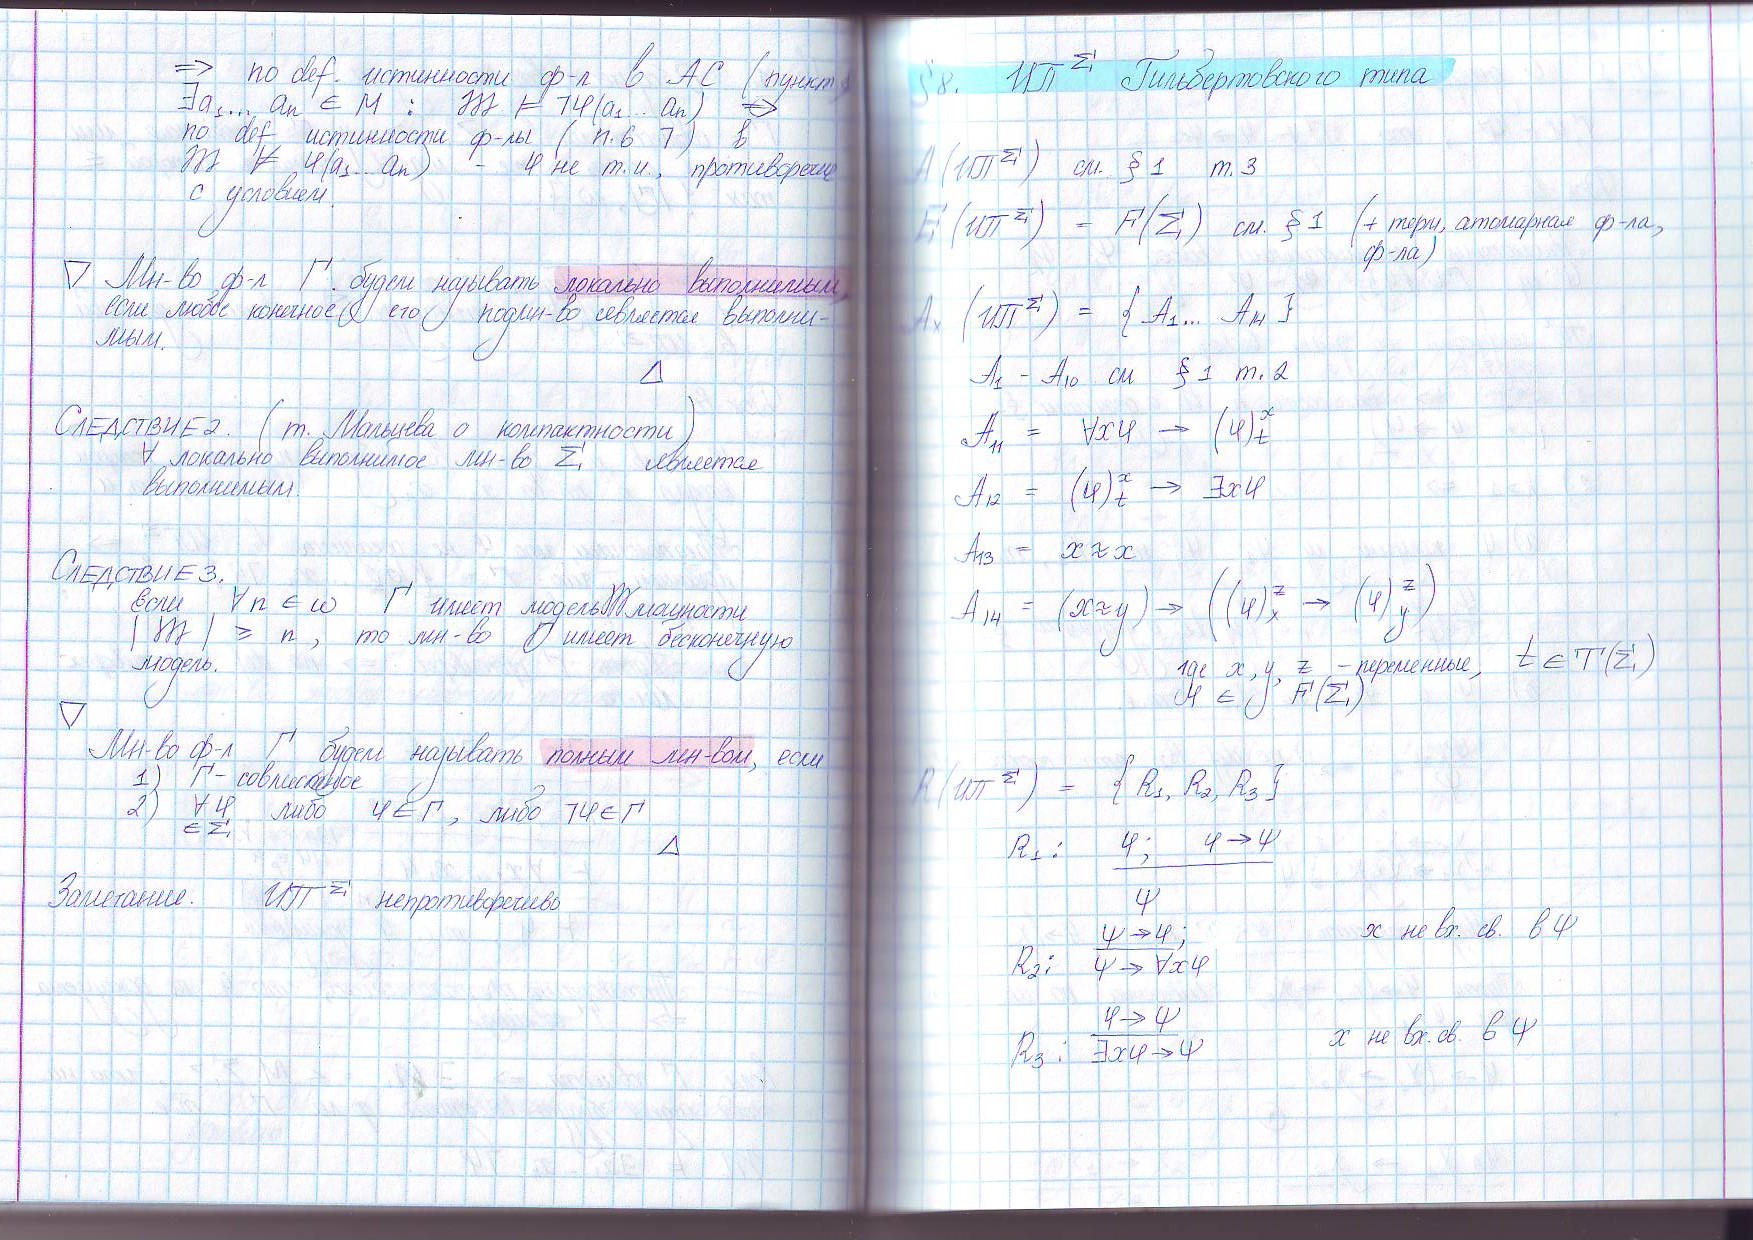 ⇒ по def. истинности ф-л в АС (пункт
∃a₁... aₙ ∈ M : 𝔐 ⊨ ¬φ(a₁...aₙ) ⇒
по def истинности ф-лы (п.6 7) в
𝔐 ⊭ φ(a₁...aₙ) - φ не т.и., противоречие
с условием.
▽ Мн-во ф-л Γ будем называть локально выполнимым,
если любое конечное его подмн-во является выполни-
мым.
△
СЛЕДСТВИЕ 2. (т. Мальцева о компактности)
∀ локально выполнимое мн-во Σ является
выполнимым.
СЛЕДСТВИЕ 3.
Если ∀n ∈ ω Γ имеет модель 𝔐 мощности
|𝔐| ≥ n, то мн-во Γ имеет бесконечную
модель.
▽
Мн-во ф-л Γ будем называть полным мн-вом, если
1) Γ - совместное
2) ∀φ либо φ∈Γ, либо ¬φ∈Γ
∈Σ
△
Замечание. ИП^Σ непротиворечиво
§8. ИП^Σ Гильбертовского типа
A(ИП^Σ) см. §1 т.3
F(ИП^Σ) = F(Σ) см. §1 (+ терм, атомарная ф-ла,
ф-ла)
Ax(ИП^Σ) = {A₁... A₁₄}
A₁ - A₁₀ см §1 т.2
A₁₁ = ∀xφ → (φ)ˣₜ
A₁₂ = (φ)ˣₜ → ∃xφ
A₁₃ = x≈x
A₁₄ = (x≈y) → ((φ)ᶻₓ → (φ)ᶻ_y)
где x, y, z - переменные, t ∈ T(Σ)
φ ∈ F(Σ)
R(ИП^Σ) = {R₁, R₂, R₃}
R₁: φ; φ→ψ
ψ
ψ→φ; x не вх. св. в ψ
R₂: ψ→∀xφ
φ→ψ
R₃: ∃xφ→ψ x не вх. св. в ψ